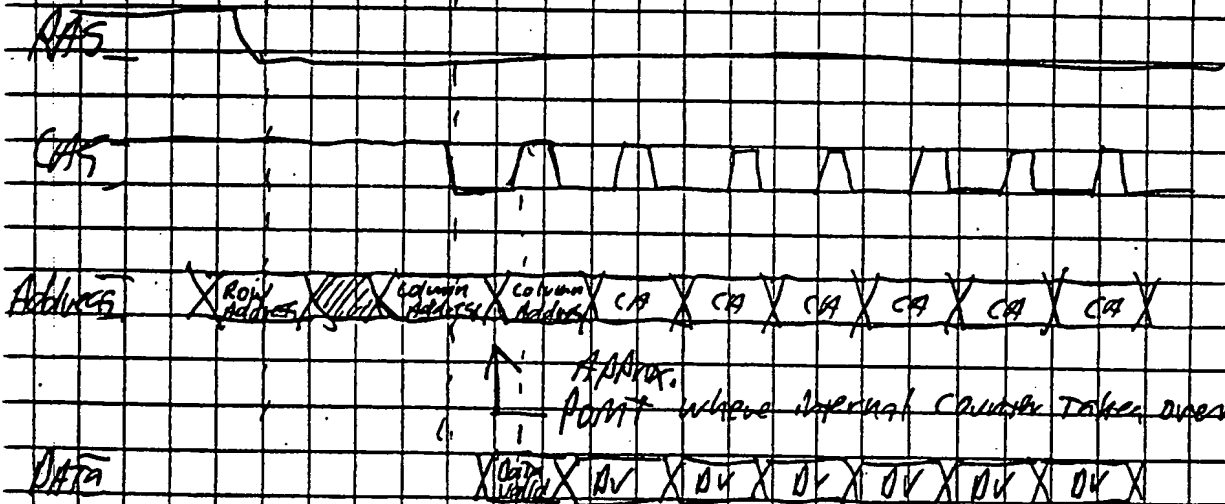 RAS
CAS
Address
Row Address
Column Address
Column Address
CA
CA
CA
CA
CA
CA
Approx.
Point where internal counter takes over
DATA
Data Valid
DV
DV
DV
DV
DV
DV